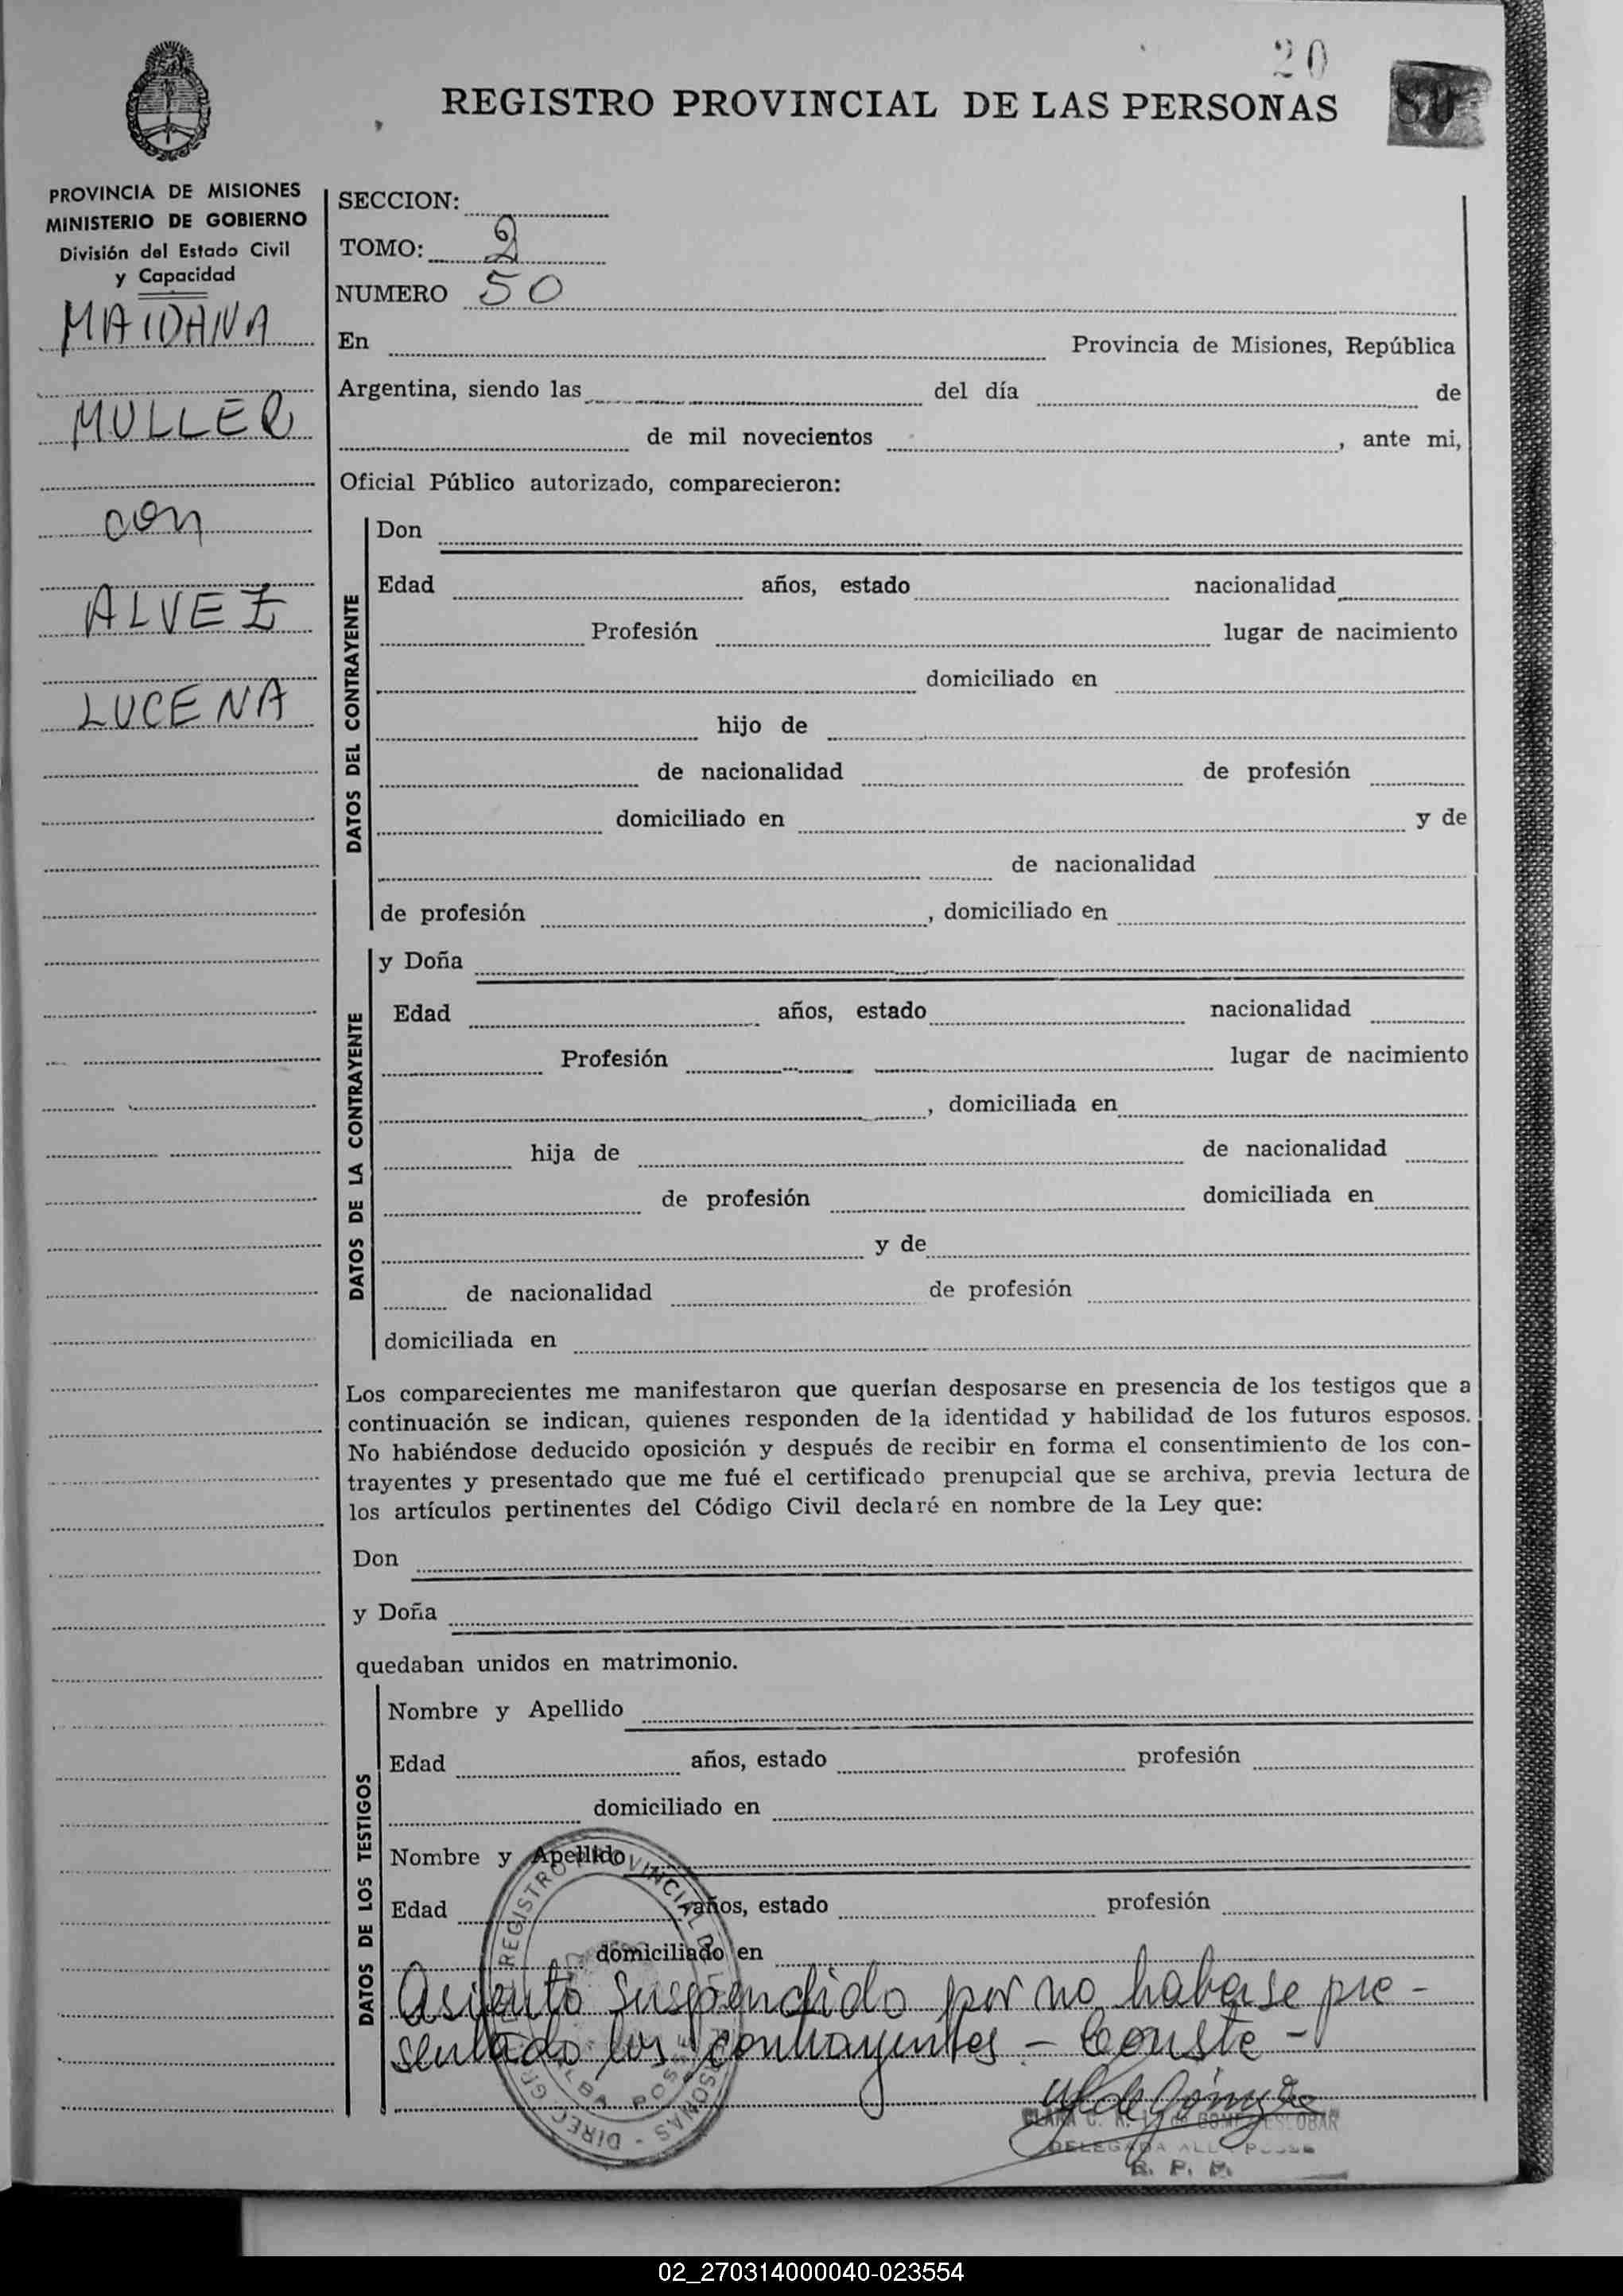 20
REGISTRO PROVINCIAL DE LAS PERSONAS
50
PROVINCIA DE MISIONES
MINISTERIO DE GOBIERNO
División del Estado Civil
y Capacidad
MAIDANA
MULLER
con
ALVEZ
LUCENA
SECCION:
TOMO: 2
NUMERO 50
En Provincia de Misiones, República
Argentina, siendo las del día de
de mil novecientos , ante mi,
Oficial Público autorizado, comparecieron:
DATOS DEL CONTRAYENTE
Don
Edad años, estado nacionalidad
Profesión lugar de nacimiento
domiciliado en
hijo de
de nacionalidad de profesión
domiciliado en y de
de nacionalidad
de profesión , domiciliado en
DATOS DE LA CONTRAYENTE
y Doña
Edad años, estado nacionalidad
Profesión lugar de nacimiento
, domiciliada en
hija de de nacionalidad
de profesión domiciliada en
y de
de nacionalidad de profesión
domiciliada en
Los comparecientes me manifestaron que querían desposarse en presencia de los testigos que a
continuación se indican, quienes responden de la identidad y habilidad de los futuros esposos.
No habiéndose deducido oposición y después de recibir en forma el consentimiento de los con-
trayentes y presentado que me fué el certificado prenupcial que se archiva, previa lectura de
los artículos pertinentes del Código Civil declaré en nombre de la Ley que:
Don
y Doña
quedaban unidos en matrimonio.
DATOS DE LOS TESTIGOS
Nombre y Apellido
Edad años, estado profesión
domiciliado en
Nombre y Apellido
Edad años, estado profesión
domiciliado en
Asiento suspendido por no haberse pre-
sentado los contrayentes - Conste -
REGISTRO PROVINCIAL
PERSONAS - DIREC. GRAL.
ALBA POSSE
CLARA C. ESCOBAR
DELEGADA ALBA POSSE
R. P. P.
02_270314000040-023554